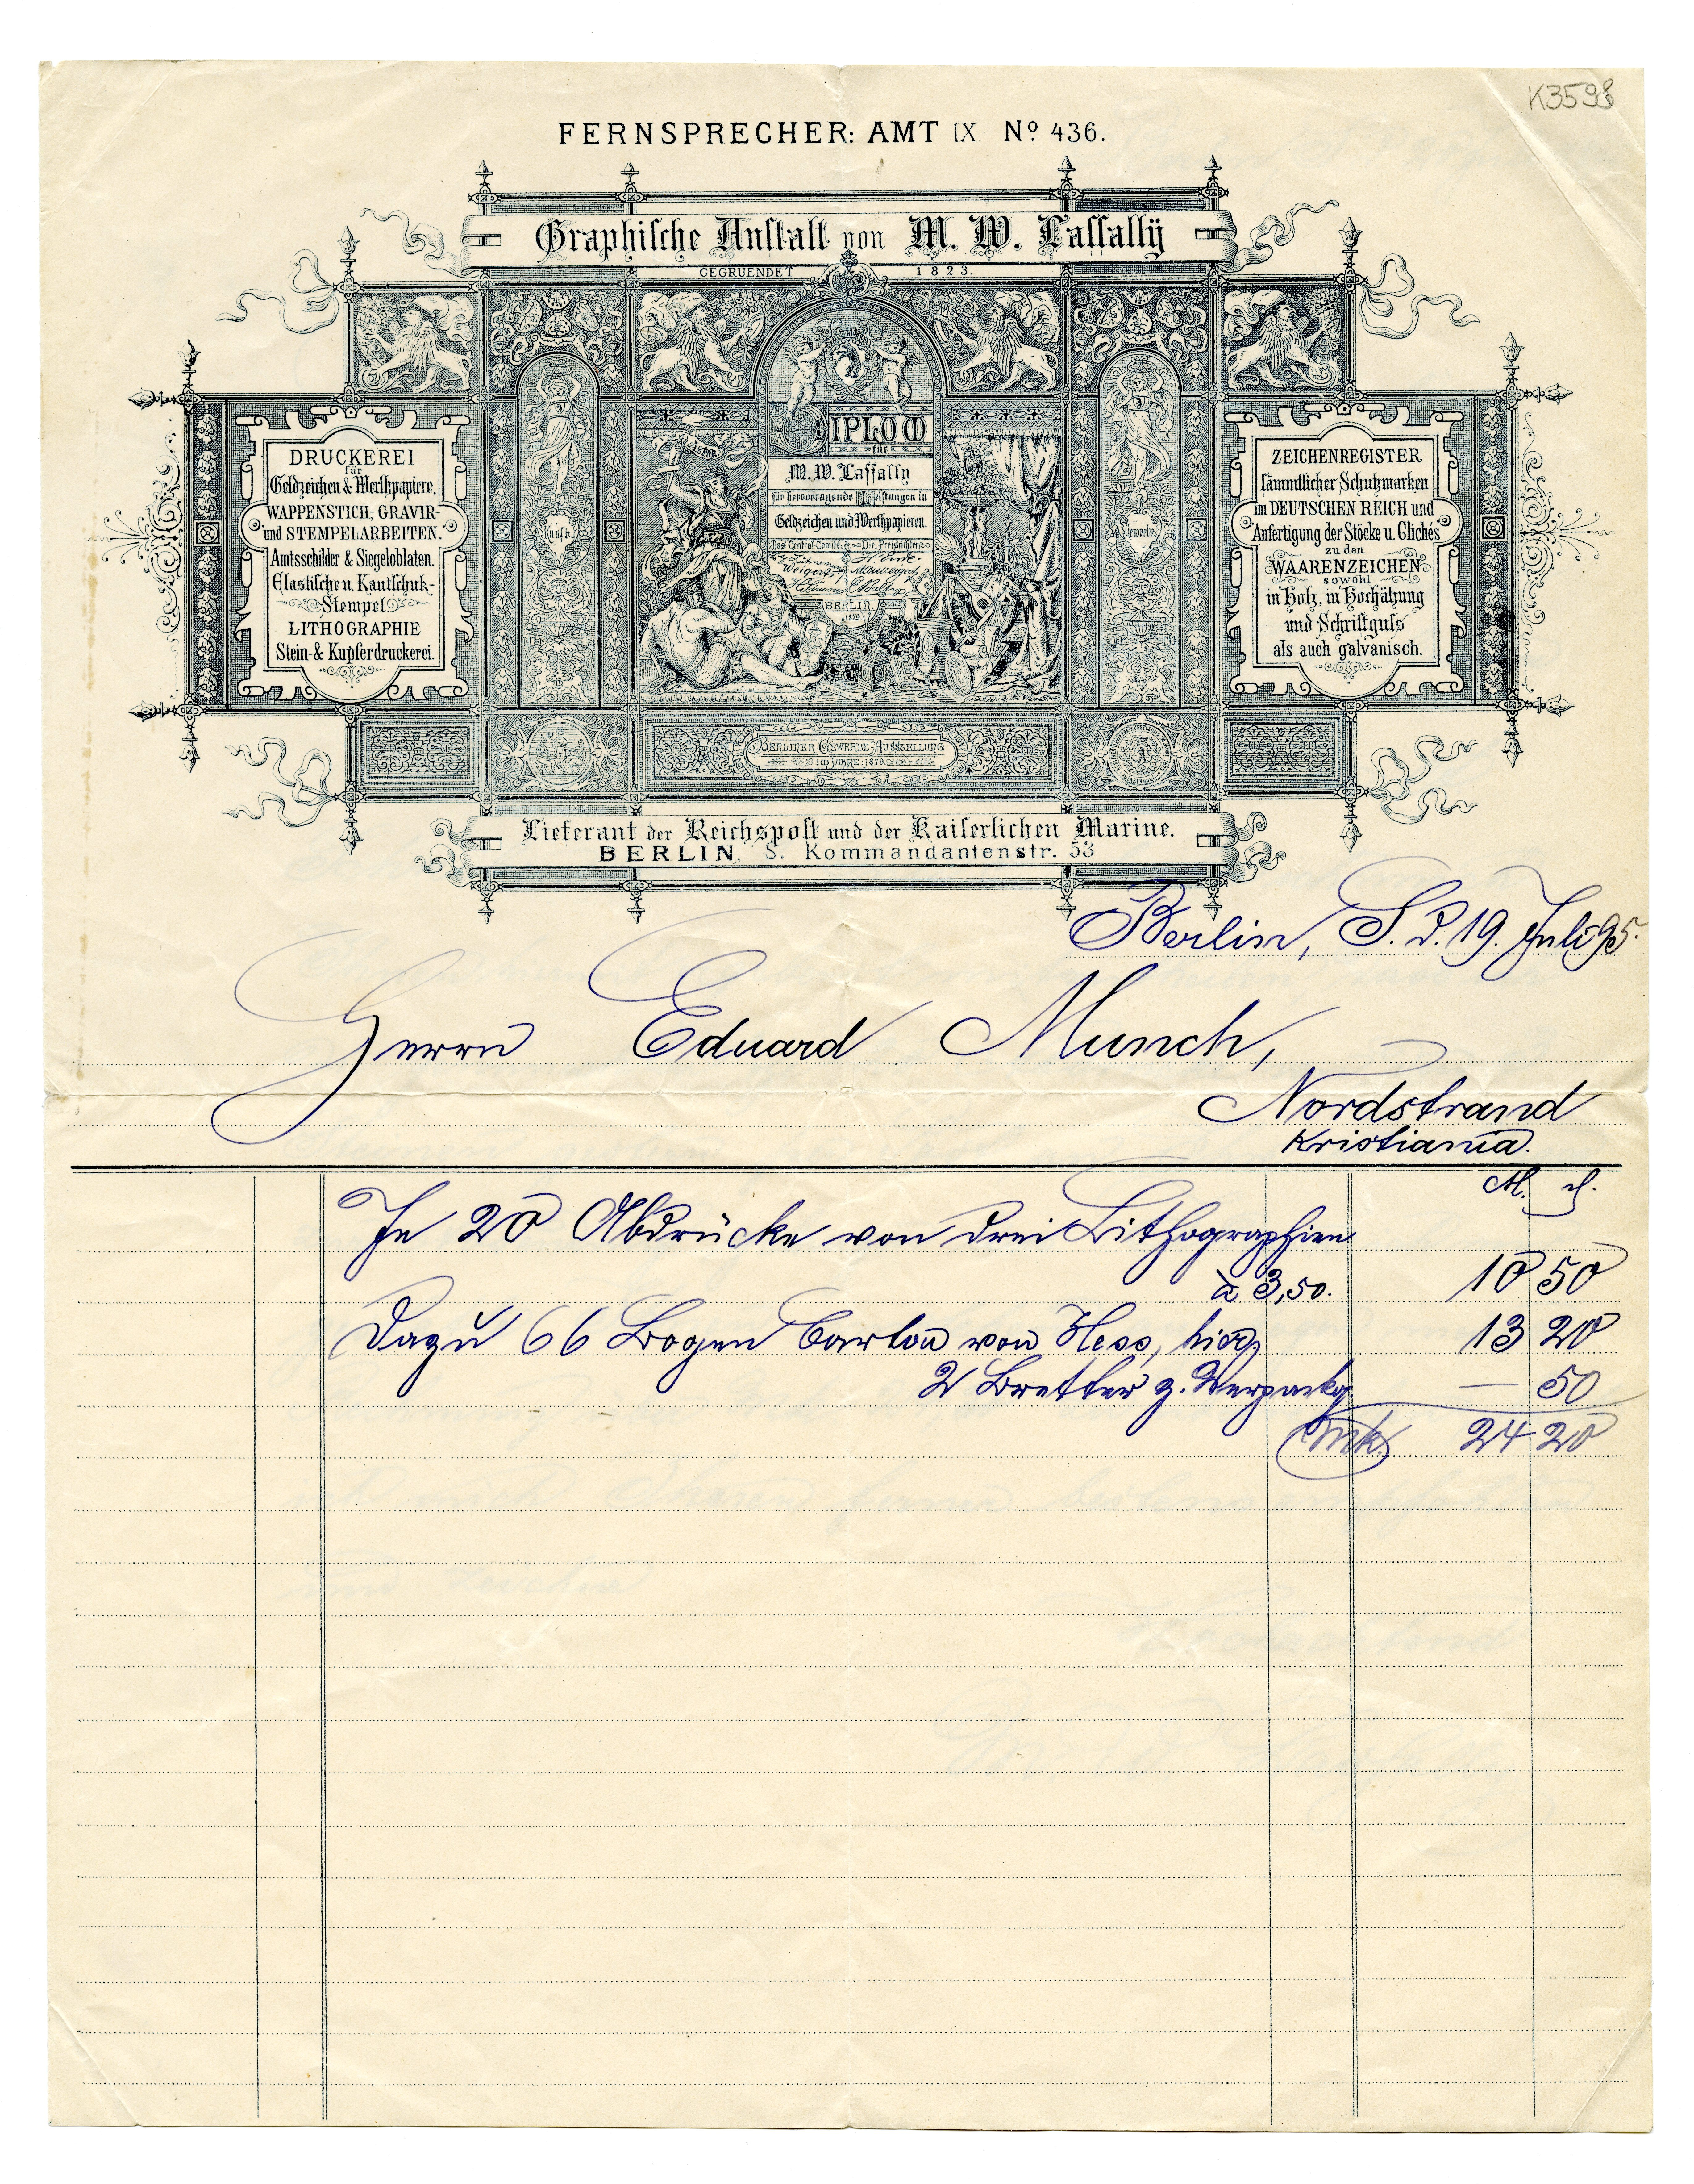 K3598
FERNSPRECHER: AMT IX Nº 436.
Graphische Anstalt von M. W. Lassally
GEGRUENDET 1823.
DRUCKEREI
für
Geldzeichen & Werthpapiere.
WAPPENSTICH, GRAVIR-
und STEMPELARBEITEN.
Amtsschilder & Siegeloblaten.
Elastische u. Kautschuk-
Stempel
LITHOGRAPHIE
Stein- & Kupferdruckerei.
Kunst.
DIPLOM
für
M. W. Lassally
für hervorragende Leistungen in
Geldzeichen und Werthpapieren.
Das Central-Comité: Die Preisrichter:
BERLIN
1879
Gewerbe.
ZEICHENREGISTER
sämmtlicher Schutzmarken
im DEUTSCHEN REICH und
Anfertigung der Stöcke u. Clichés
zu den
WAARENZEICHEN
sowohl
in Holz, in Hochätzung
und Schriftguss
als auch galvanisch.
BERLINER GEWERBE-AUSSTELLUNG
IM JAHRE: 1879.
Lieferant der Reichspost und der Kaiserlichen Marine.
BERLIN S. Kommandantenstr. 53
Berlin, S. d. 19. Juli 95.
Herrn Eduard Munch,
Nordstrand
Kristiania.
M. d.
Je 20 Abdrücke von drei Lithographien
à 3,50. 10 50
Dazu 66 Bogen Carton von Hess, hier, 13 20
2 Bretter z. Verpackg. — 50
Mk. 24 20